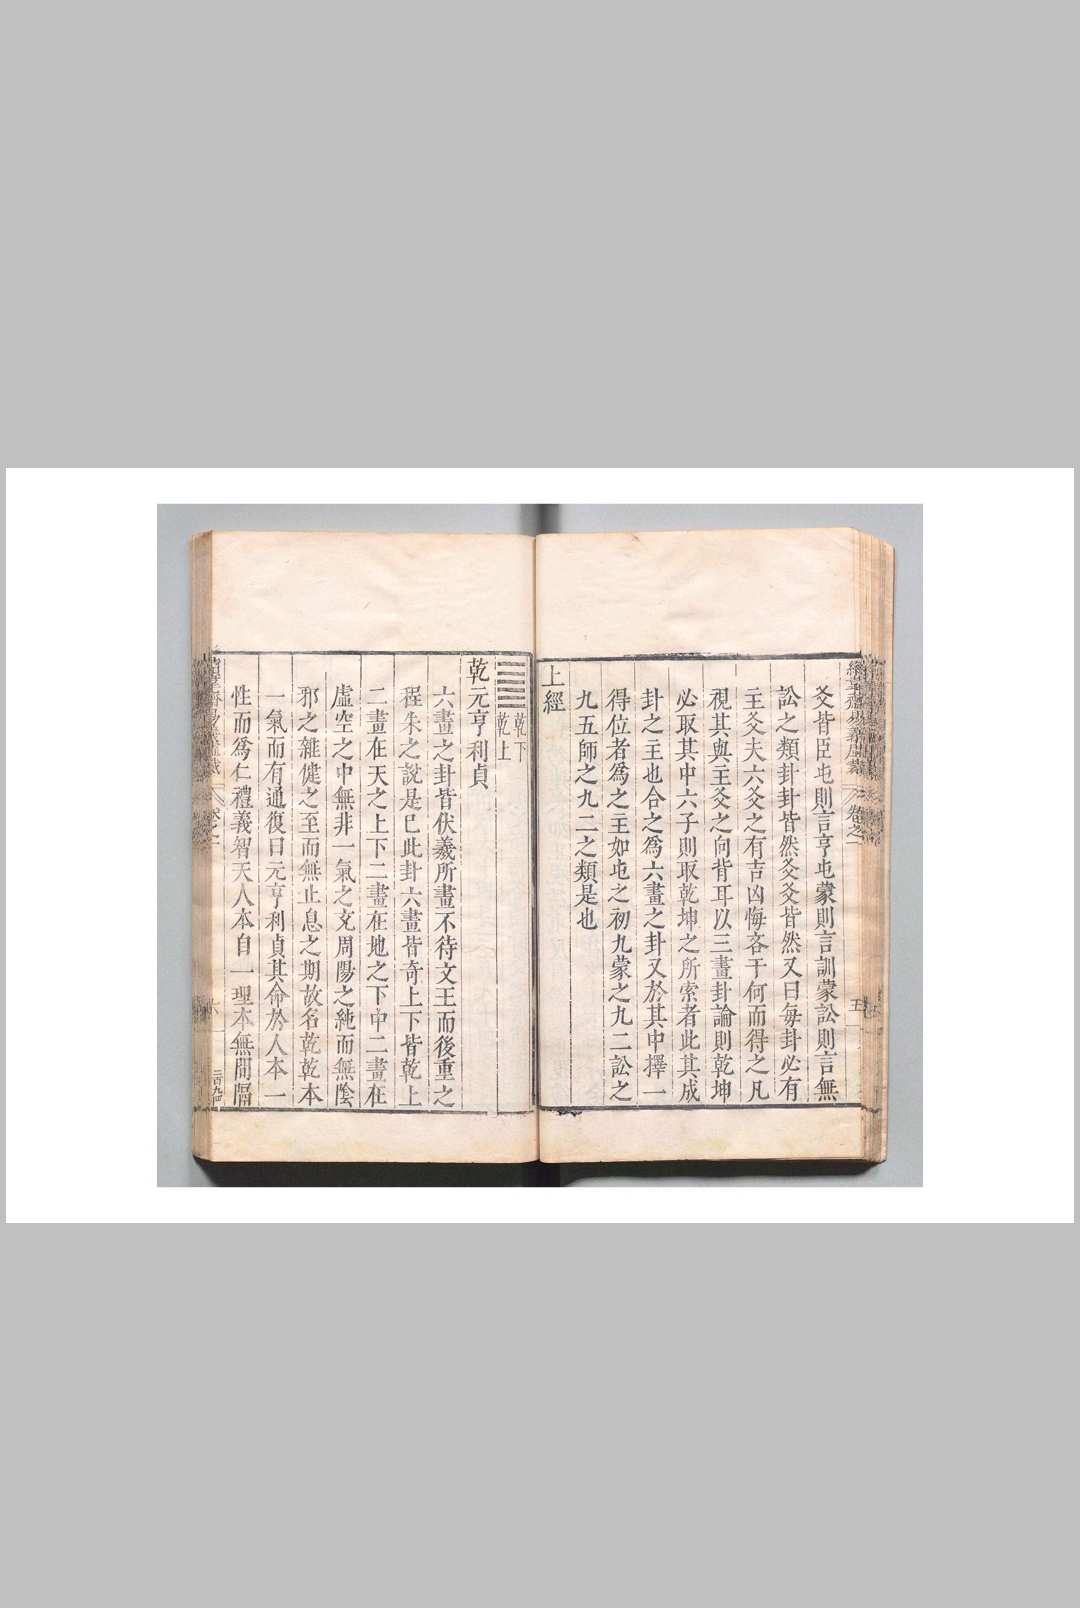 爻皆臣屯則言亨屯蒙則言訓蒙訟則言無
訟之類卦卦皆然爻爻皆然又曰每卦必有
主爻夫六爻之有吉凶悔吝于何而得之凡
視其與主爻之向背耳以三畫卦論則乾坤
必取其中六子則取乾坤之所索者此其成
卦之主也合之為六畫之卦又於其中擇一
得位者爲之主如屯之初九蒙之九二訟之
九五師之九二之類是也
上經
乾下
乾上
乾元亨利貞
六畫之卦皆伏羲所畫不待文王而後重之
程朱之說是已此卦六畫皆奇上下皆乾上
二畫在天之上下二畫在地之下中二畫在
虛空之中無非一氣之充周陽之純而無陰
邪之雜健之至而無止息之期故名乾乾本
一氣而有通復曰元亨利貞其命於人本一
性而爲仁禮義智天人本自一理本無間隔
卷之一
五
六
三百九四